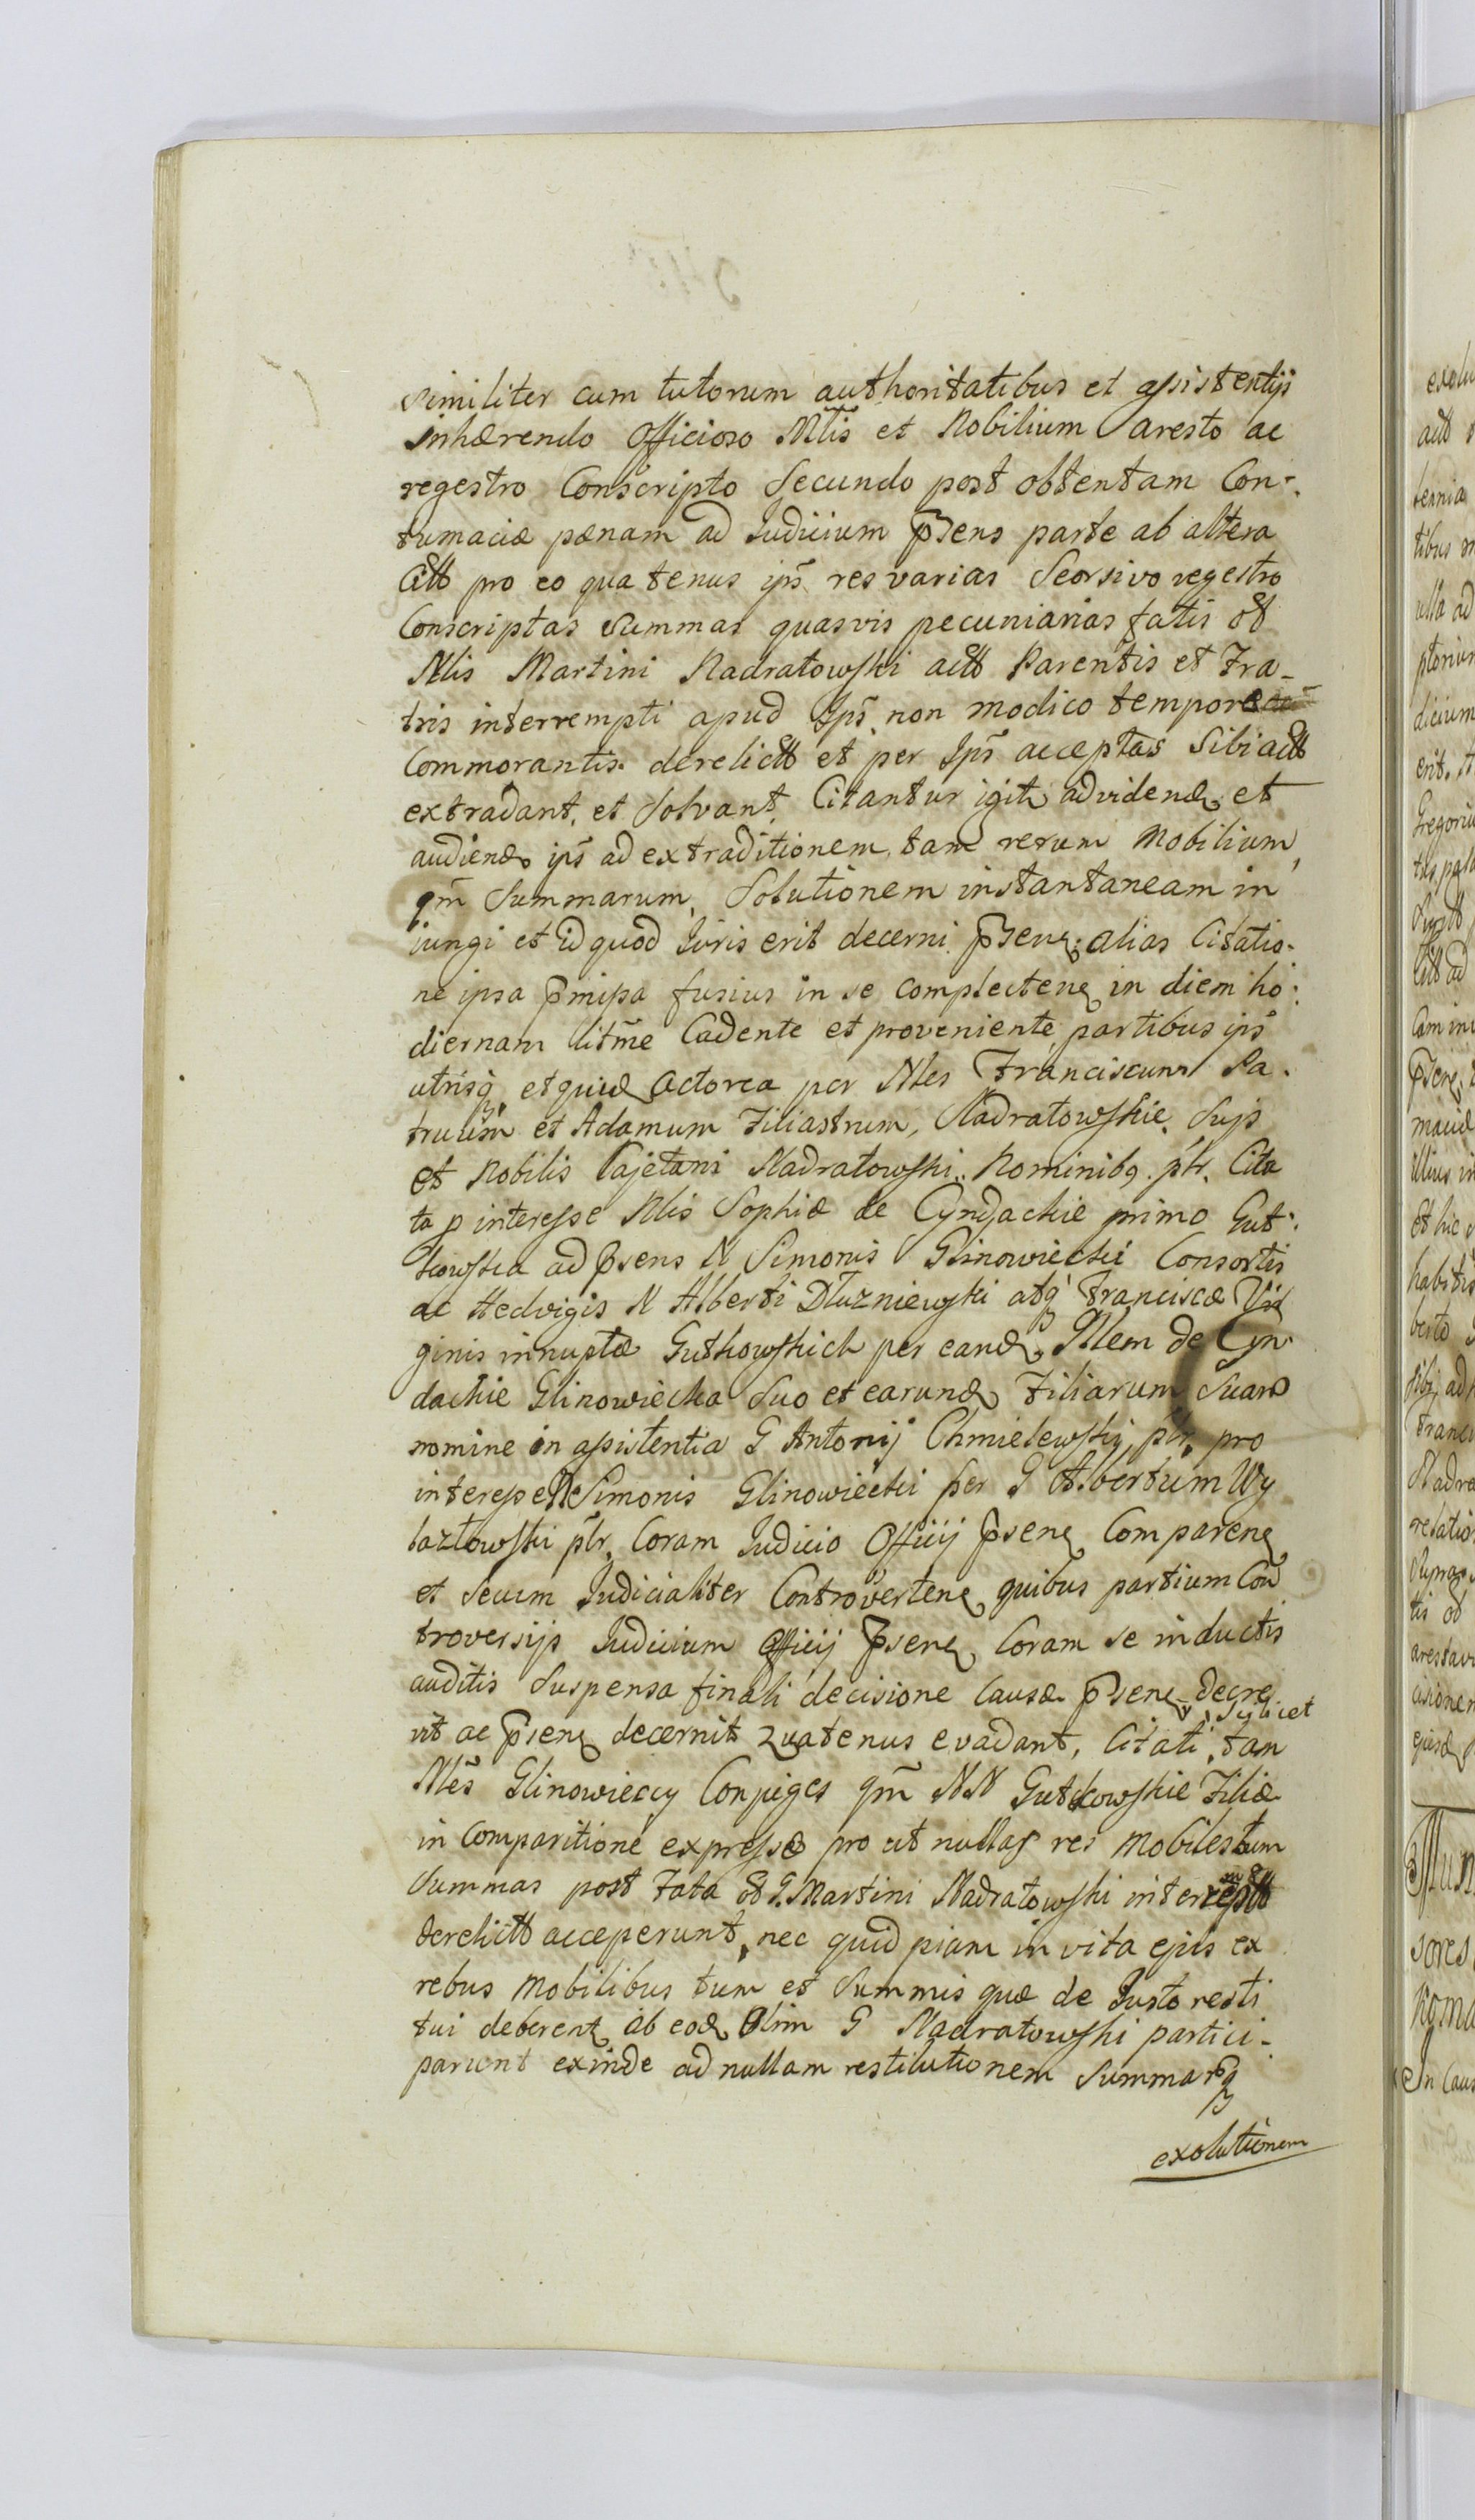 similiter cum tutorum authoritatibus et assistentijs
inhærendo Officioso Mtis et Nobilium aresto ac
regestro Conscripto Secundo post obtentam Con-
tumaciæ pænam ad Judicium p̄sens parte ab altera
Citt pro eo quatenus ips̄ res varias Seorsivo regestro
Conscriptas Summas quasvis pecuniarias fatis ol
Nlis Martini Nadratowski actt Parentis et Fra-
tris interrempti apud Ips̄ non modico tempore
Commorantis derelictt et per Ips̄ acceptas Sibi actt
extradant, et Solvant, Citantur igitr ad videnđ et
audienđ ips̄ ad extraditionem, tam rerum Mobilium,
qm̄ Summarum, Solutionem instantaneam in
iungi et id quod Juris erit decerni p̄senę alias Citatio-
ne ipsa p̄mipa fusius in se complectenę in diem ho-
diernam litm̄e Cadente et proveniente, partibus ips̄
utrisq̨ et quid Actorea per Nles Franciscum Pa-
truum et Adamum Filiastrum, Nadratowskie, Suis
et Nobilis Cajetani Nadratowski Nominibq. pr̄. Cita
ta p interesse Nlis Sophiæ de Cyndackie primo Gut-
kowska ad p̄sens N Simonis Glinowiecki Consortis
ac Hedvigis N Alberti Dłuzniewski atq̨ Franciscæ Vir
ginis innuptæ Gutkowskich per eanđ Nlem de Cyn-
dackie Glinowiecka Suo et earunđ Filiarum Suarū
nomine in assistentia G Antonij Chmielewski, pr̄, pro
interesse N Simonis Glinowiecki per G Albertum Wy
łazłowski pr̄, Coram Judicio Officij p̄senę Comparenę
et Secum Judicialiter Controvertenę quibus partium Con
troversijs Judicium Officij p̄senę Coram se inductis
auditis Suspensa finali decisione Causæ p̄senę decre
Scilicet
vit ac p̄senę decernit Quatenus evadant, Citati, tam
Nlēs Glinowieccy Conjuges qm̄ NN Gutkowskie Filiæ
in Comparitione expressæ pro ut nullas res Mobiles tum
Summas post Fata ol G. Martini Nadratowski
derelictt acceperunt, nec quidpiam in vita ejus ex
rebus Mobilibus tum et Summis quæ de Justo resti
tui deberent ab eođ Olim G Nadratowski partici-
parunt exinde ad nullam restitutionem Summarq̨
exolutionem